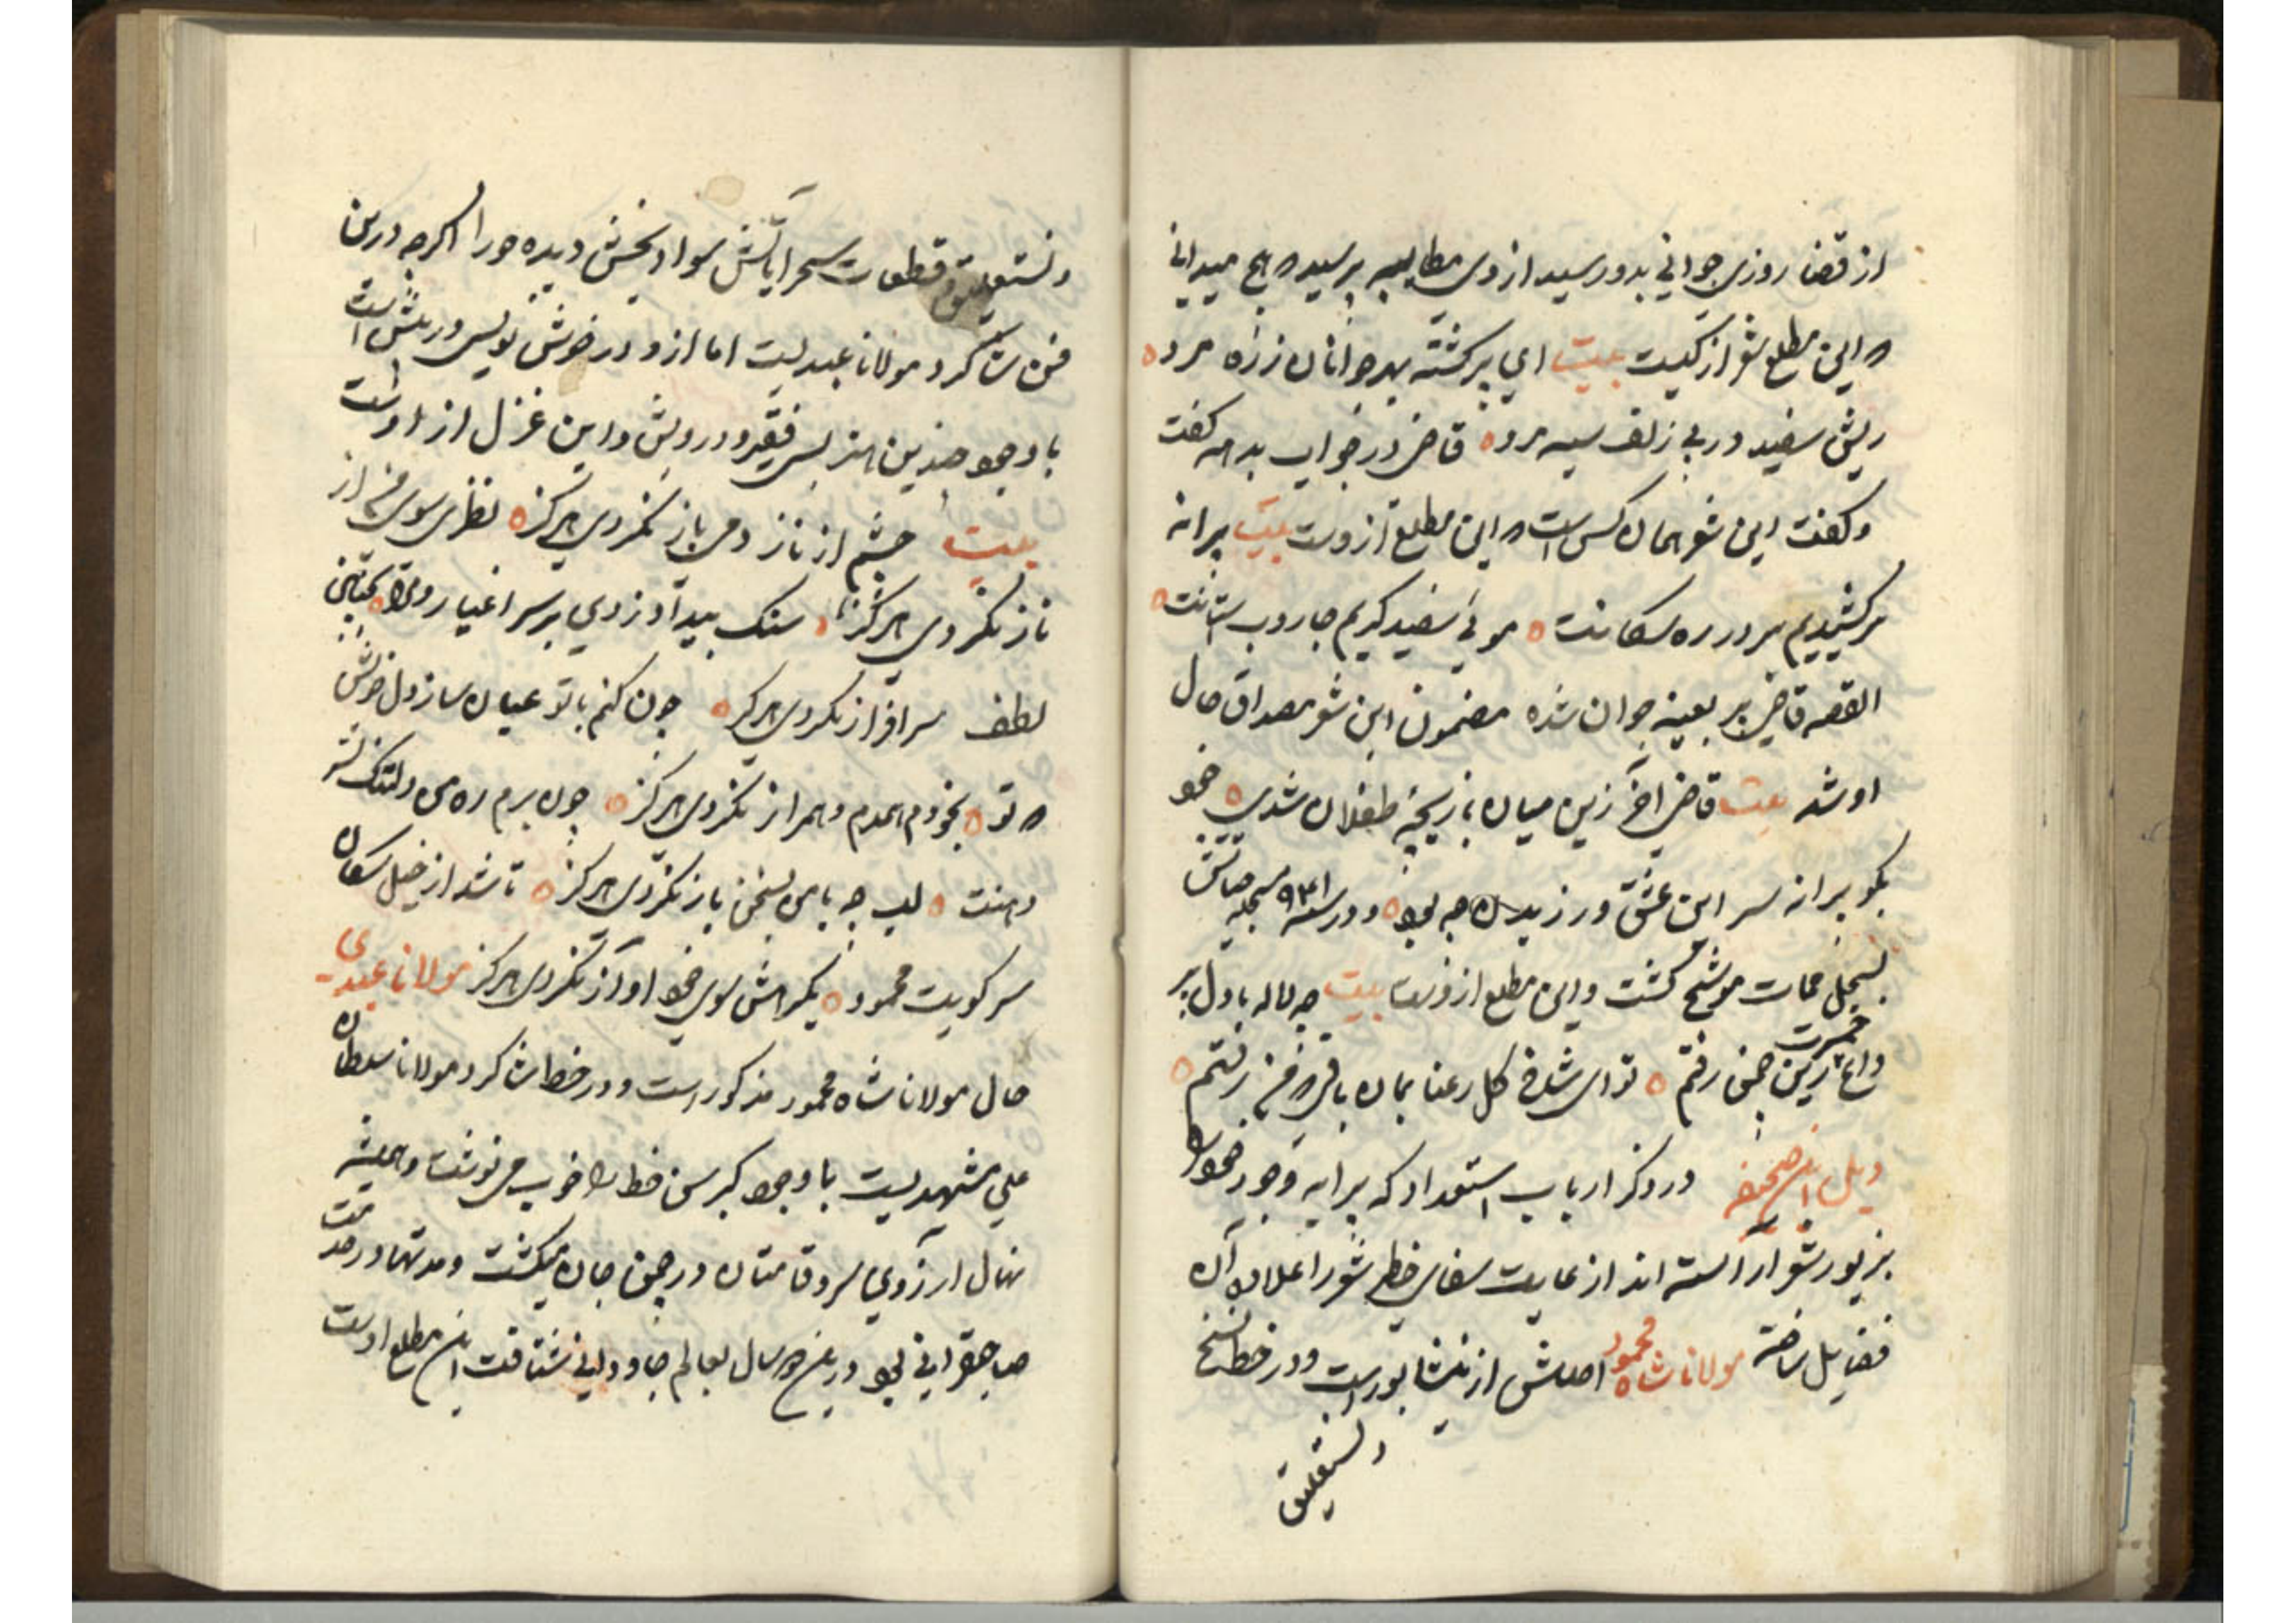 از قضا روزی جوانی بدو رسید از وی مطایبه پرسید که هیچ میدانی
که این مطلع شعر از کیست بیت ای پیر کشته بهر جوانان ز ره مرو
ریش سفید در پی زلف سیه مرو قاضی در جواب بدیهه گفت
و گفت این شعر همان کس است که این مطلع ازوست بیت پیرانه
سر کشیدیم سر در ره سکانت موی سفید کردیم جاروب آستانت
القصه قاضی پیر بعینه جوان شده مضمون این شعر مصداق حال
او شد بیت قاضی آخر زین میان بازیچهٔ طفلان شدی خود
بکو پیرانه سر این عشق ورزیدن چه بود و در سنه ۹۴۱ سجل حیاتش
بسجل ممات موشح کشت و این مطلع ازوست بیت چو لاله با دل پر
داغ حسرت زین چمن رفتم تو ای شاخ کل رعنا بمان باقی که من رفتم
ذیل این صحیفه در ذکر ارباب استعداد که پیرایه وجود خود را
بزیور شعر آراسته اند از غایت صفای خط شعر را علاوه آن
فضایل ساخته مولانا شاه محمود اصلش از نیشابورست و در خط نسخ
ونستعلیق
ونستعلیق قطعات سحر آیاتش سواد بخش دیده حورا اکرچه درین
فن شاکرد مولانا عبدیست اما ازو در خوش نویسی در پیش است
با وجود چندین هنر بس فقیر و درویش و این غزل از اوست
بیت چشم از ناز دمی باز نکردی هرکز نظری سوی من از
ناز نکردی هرکز سنک بیداد زدی بر سر اغیار ولی بمن
لطف سرافراز نکردی هرکز چون کنم با تو عیان ساز دل خویش
که تو بخودم همدم و همراز نکردی هرکز چون برم ره من دلتنک بسر
دهنت لب چو با من بسخن باز نکردی هرکز تا شد از خیل سکان
سر کویت محمود یکرهش سوی خود آواز نکردی هرکز مولانا عبدی
خال مولانا شاه محمود مذکور است و در خط شاکرد مولانا سلطان
علی مشهدیست با وجود کبر سن خط را خوب می نوشت و همیشه
نهال آرزوی سرو قامتان در چمن جان میکشت و مدتها در خدمت
صاحبقرانی بود در سال بعالم جاودانی شتافت این مطلع اوست